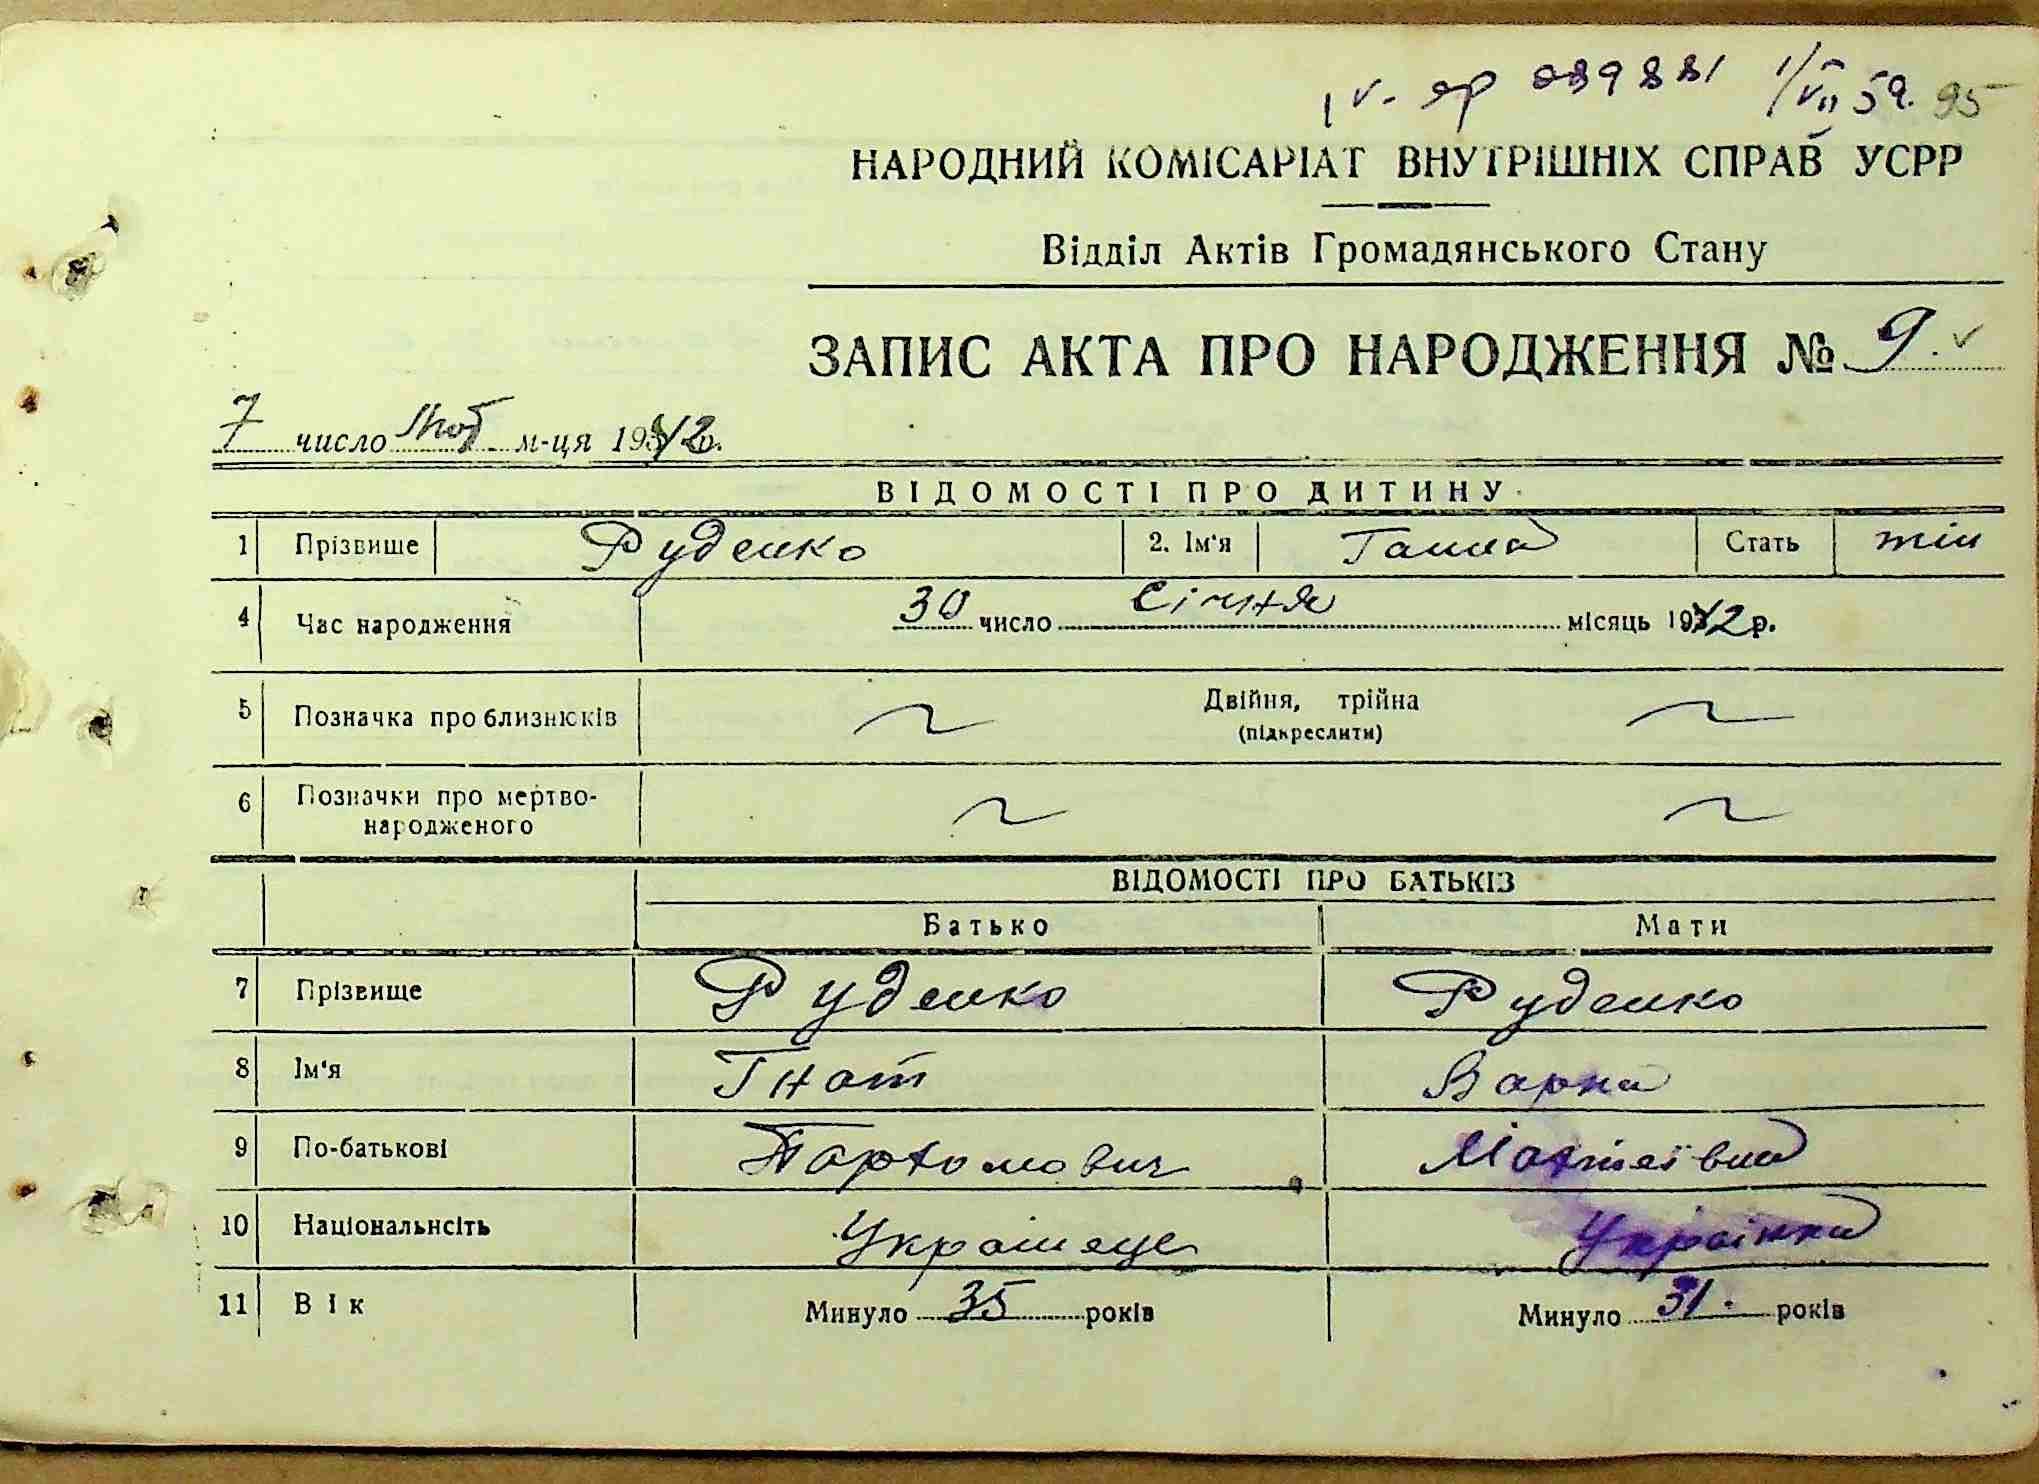 IV-яр 039881 1/VII 59. 95
НАРОДНИЙ КОМІСАРІАТ ВНУТРІШНІХ СПРАВ УСРР
Відділ Актів Громадянського Стану
ЗАПИС АКТА ПРО НАРОДЖЕННЯ № 9.
7 число Лют м-ця 1942 р.
ВІДОМОСТІ ПРО ДИТИНУ
1 Прізвище Руденко 2. Ім'я Ганна Стать жін
4 Час народження 30 число Січня місяць 1942 р.
5 Позначка про близнюків Двійня, трійна
(підкреслити)
6 Позначки про мертво-
народженого
ВІДОМОСТІ ПРО БАТЬКІВ
Батько Мати
7 Прізвище Руденко Руденко
8 Ім'я Гнат Варка
9 По-батькові Пархомович Матвіївна
10 Національнсіть Українець Українка
11 Вік Минуло 35 років Минуло 31. років